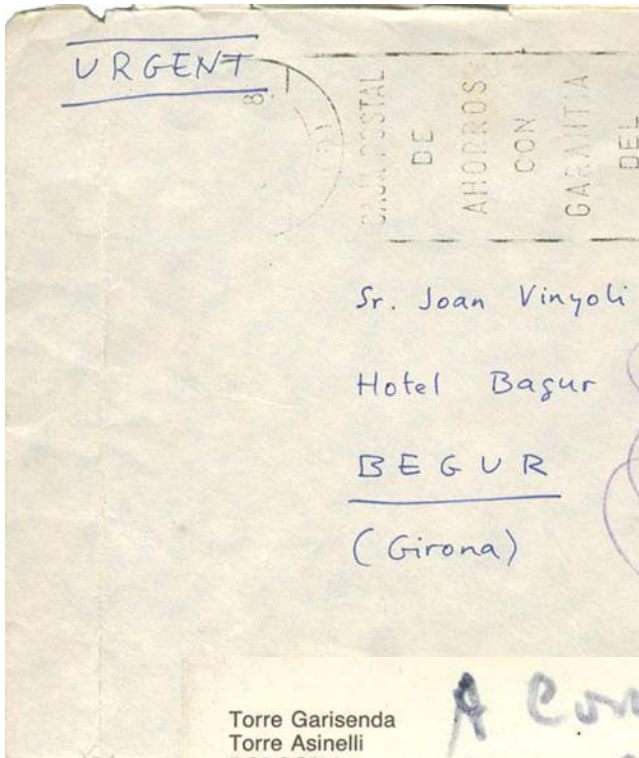 URGENT
CAJA POSTAL
DE
AHORROS
CON
GARANTIA
DEL
Sr. Joan Vinyoli
Hotel Bagur
BEGUR
(Girona)
A
Torre Garisenda
Torre Asinelli